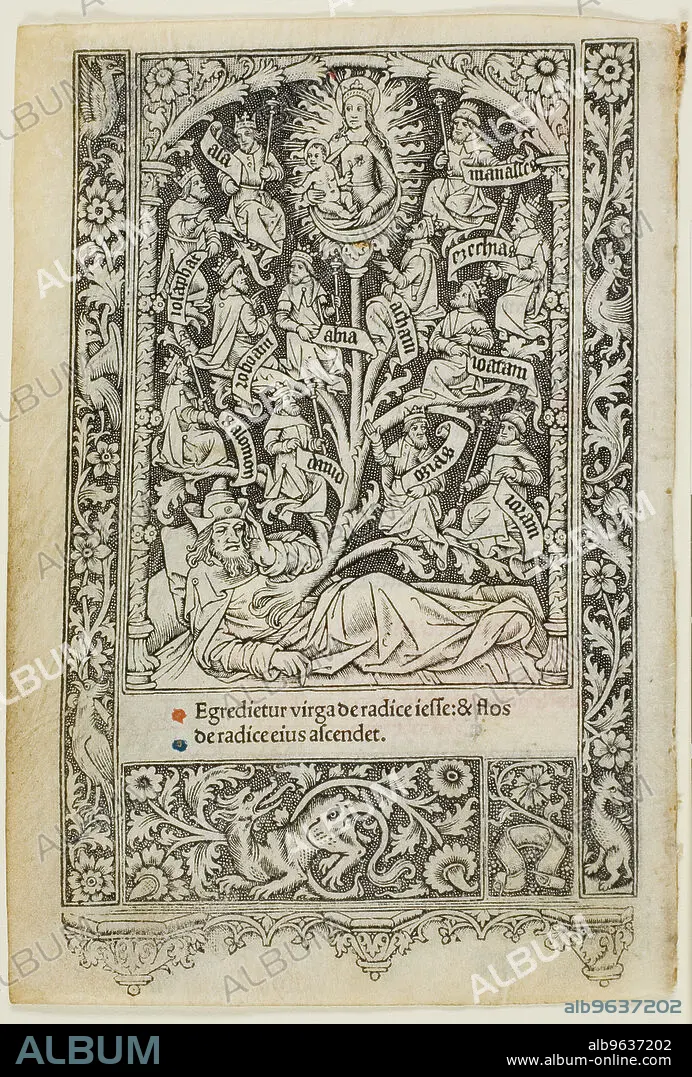 asa
manasses
iosaphat
ezechias
roboam
abia
acham
ioatam
salomon
david
osias
ioram
Egredietur virga de radice iesse: & flos
de radice eius ascendet.
ALBUM
alb9637202
ALBUM
alb9637202
www.album-online.com